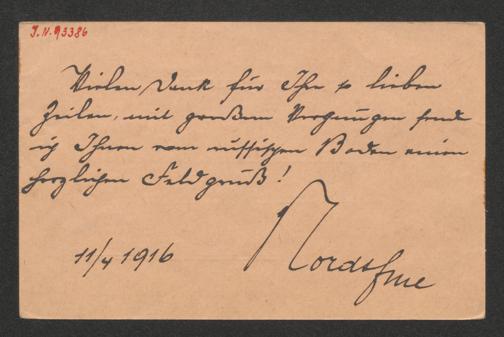 J.N. 93386
Vielen Dank für Ihre lieben
Zeilen, mit großem Vergnügen sende
ich Ihnen vom russischen Boden einen
herzlichen Feldgruß!
11/4 1916